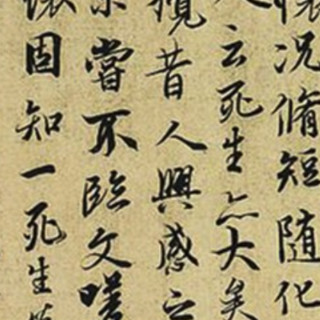 懷况脩短隨化
人云死生亦大矣
攬昔人興感之
未嘗不臨文嗟
懷固知一死生